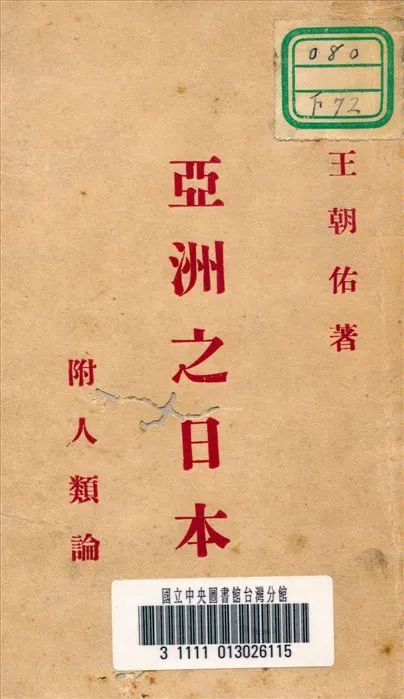 080
F72
王朝佑著
亞洲之日本
附人類論
國立中央圖書館台灣分館
3 1111 013026115